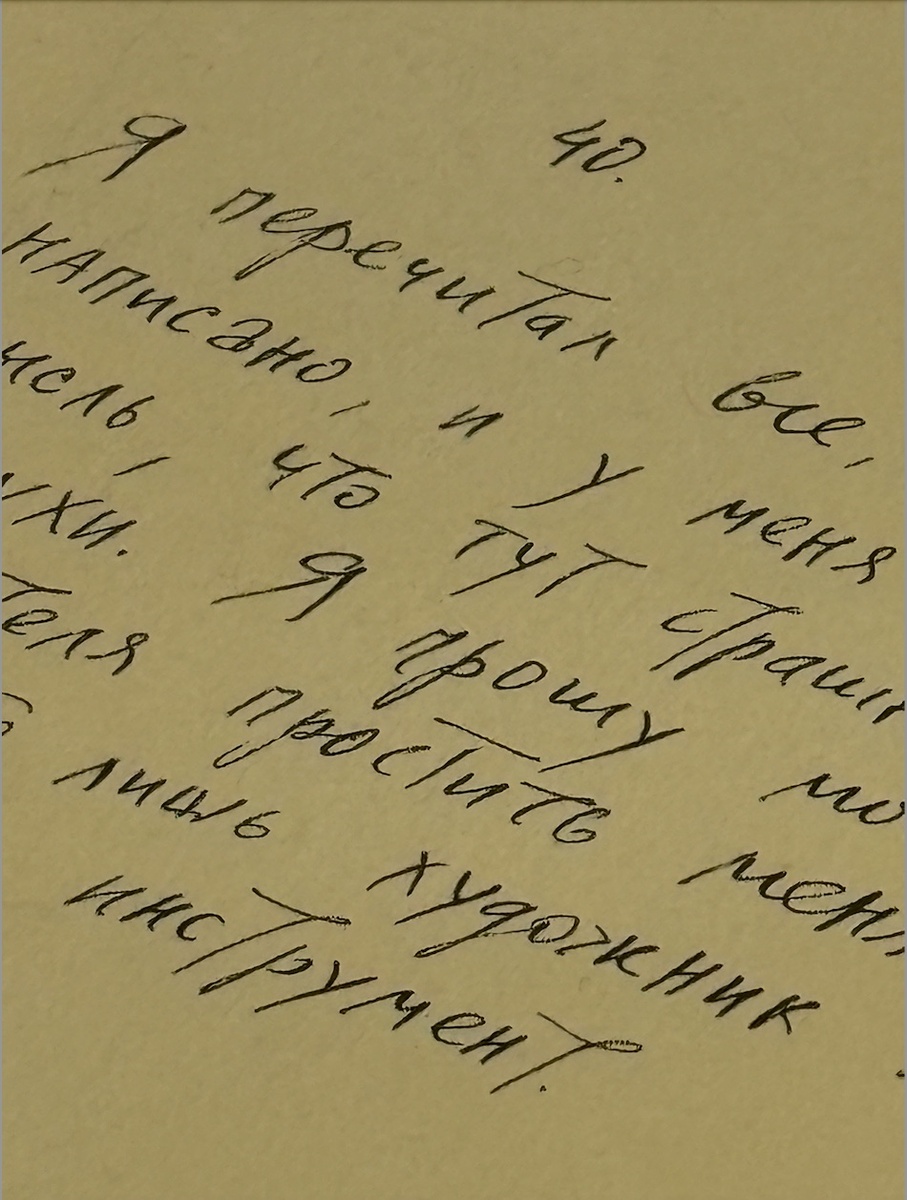 40.
Я перечитал все,
написано, и у меня
что тут страш
ухи. Я прошу мо
теля простить меня
лишь художник
инструмент.